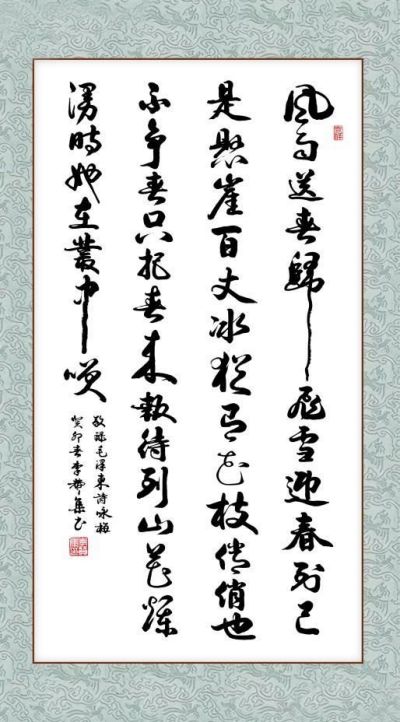 風雨送春歸飛雪迎春到已
是懸崖百丈冰猶有花枝俏俏也
不爭春只把春來報待到山花爛
漫時她在叢中咲
敬録毛澤東詩詠梅
癸卯春李集書